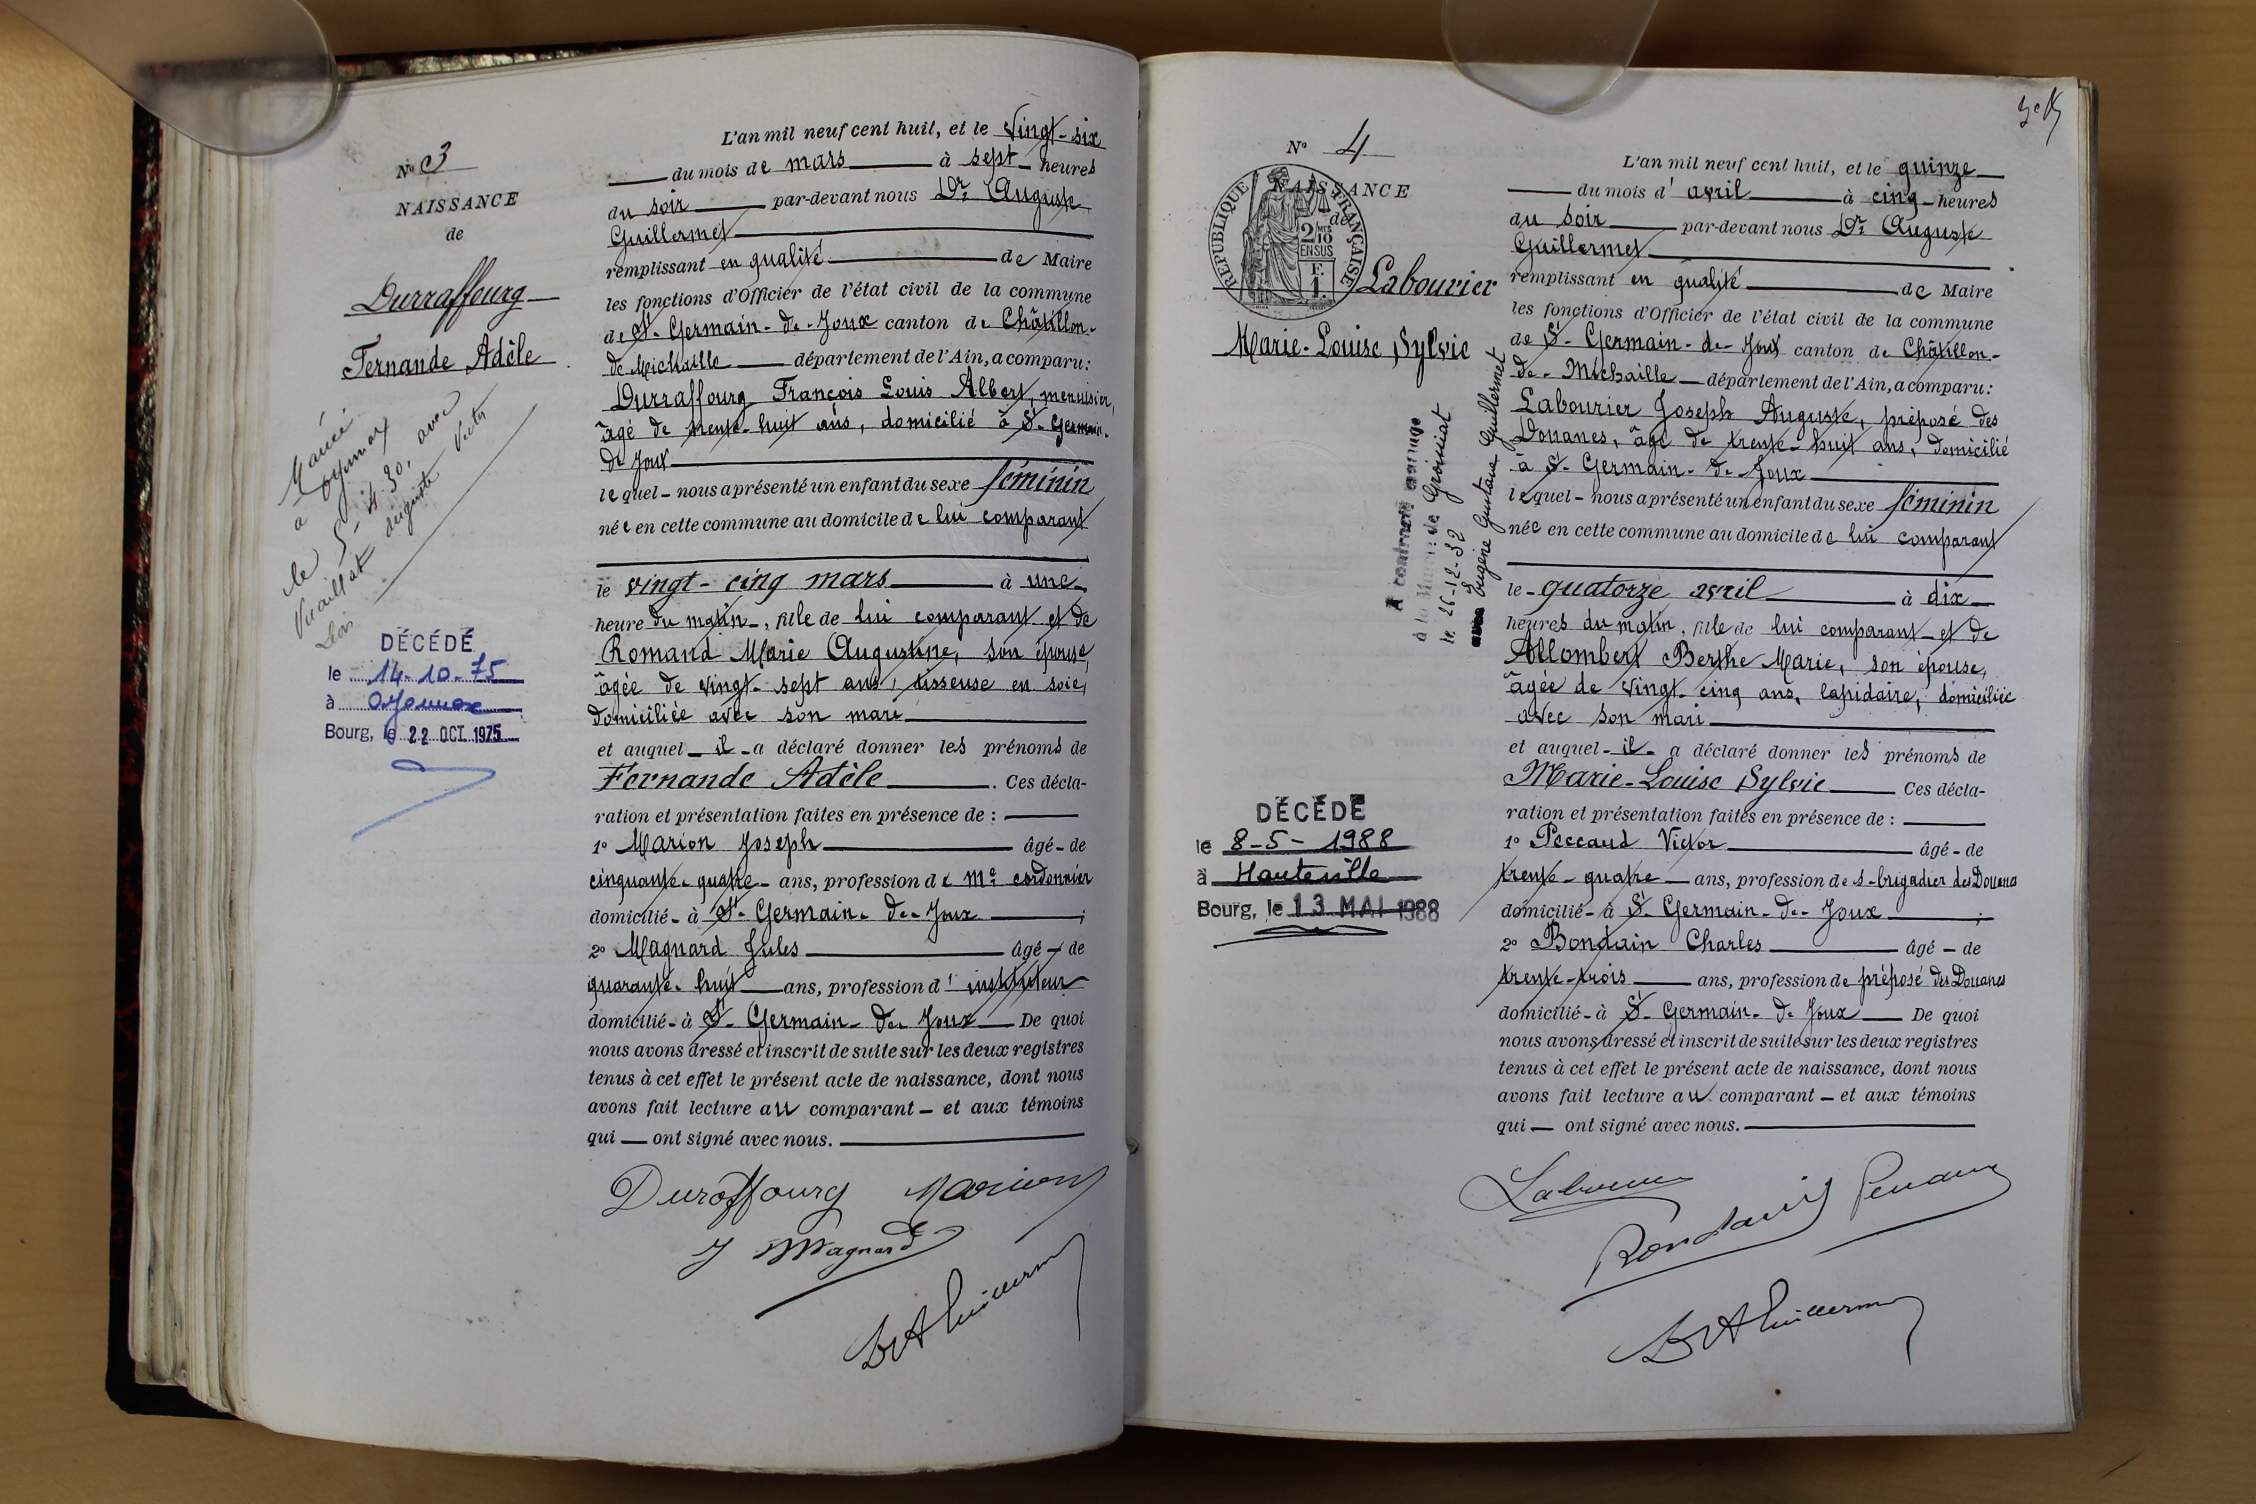 N° 3
NAISSANCE
de
Durraffourg
Fernande Adèle
Mariée
à Oyonnax
le 5-4-30, avec
Vuaillat Auguste Victor
Léon
DÉCÉDÉ
le 14-10-75
à Oyonnax
Bourg, le 22 OCT. 1975
L'an mil neuf cent huit, et le vingt-six
du mois de mars à sept heures
du soir par-devant nous Dr Auguste
Guillermet
remplissant en qualité de Maire
les fonctions d'Officier de l'état civil de la commune
de St-Germain-de-Joux canton de Châtillon-
de Michaille département de l'Ain, a comparu:
Durraffourg François Louis Albert, menuisier,
âgé de trente-huit ans, domicilié à St-Germain-
de Joux
lequel - nous a présenté un enfant du sexe féminin
née en cette commune au domicile de lui comparant
le vingt-cinq mars à une
heure du matin, fille de lui comparant et de
Romand Marie Augustine, son épouse,
âgée de vingt-sept ans, tisseuse en soie,
domiciliée avec son mari
et auquel - il - a déclaré donner les prénoms de
Fernande Adèle. Ces décla-
ration et présentation faites en présence de :
1° Marion Joseph âgé - de
cinquante-quatre - ans, profession de Me cordonnier
domicilié - à St-Germain-de-Joux ;
2° Magnard Jules âgé - de
quarante-huit ans, profession d' instituteur
domicilié - à St-Germain-de-Joux De quoi
nous avons dressé et inscrit de suite sur les deux registres
tenus à cet effet le présent acte de naissance, dont nous
avons fait lecture au comparant - et aux témoins
qui — ont signé avec nous.
Duraffourg Marion
J Magnard
Dr A Guillermet
3e f
N° 4
NAISSANCE
de
RÉPUBLIQUE FRANÇAISE
2/10
EN SUS
F.
1.
Labourier
Marie-Louise Sylvie
A contracté mariage
à la Mairie de Groissiat
le 26-12-32
avec Eugène Gustave Guillermet
DÉCÉDÉ
le 8-5-1988
à Hauteville
Bourg, le 13 MAI 1988
L'an mil neuf cent huit, et le quinze
du mois d' avril à cinq heures
du soir par-devant nous Dr Auguste
Guillermet
remplissant en qualité de Maire
les fonctions d'Officier de l'état civil de la commune
de St-Germain-de-Joux canton de Châtillon-
de-Michaille département de l'Ain, a comparu:
Labourier Joseph Auguste, préposé des
Douanes, âgé de trente-huit ans, domicilié
à St-Germain-de-Joux
lequel - nous a présenté un enfant du sexe féminin
née en cette commune au domicile de lui comparant
le quatorze avril à dix
heures du matin, fille de lui comparant et de
Allombert Berthe Marie, son épouse,
âgée de vingt-cinq ans, lapidaire, domiciliée
avec son mari
et auquel - il - a déclaré donner les prénoms de
Marie-Louise Sylvie Ces décla-
ration et présentation faites en présence de :
1° Peccaud Victor âgé - de
trente-quatre ans, profession de s-brigadier des Douanes
domicilié - à St-Germain-de-Joux ;
2° Bondain Charles âgé - de
trente-trois ans, profession de préposé des Douanes
domicilié - à St-Germain-de Joux De quoi
nous avons dressé et inscrit de suite sur les deux registres
tenus à cet effet le présent acte de naissance, dont nous
avons fait lecture au comparant - et aux témoins
qui — ont signé avec nous.
Labourier
Dr A Guillermet